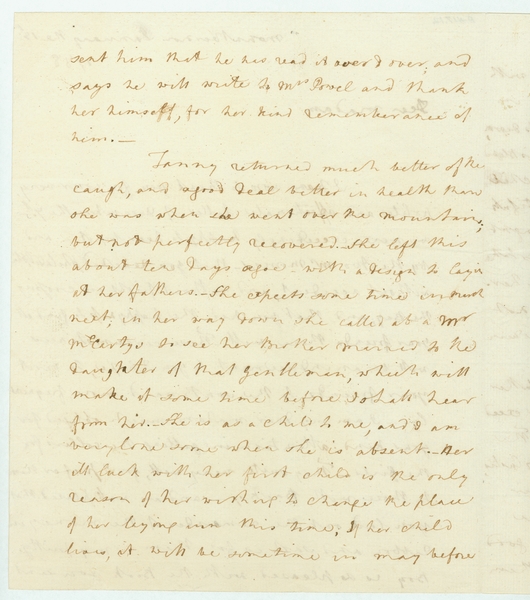 sent him that he has read it over & over, and
says he will write to Mrs Povel and thank
her himself, for her kind rememberance of
him.—
Fanny returned much better of the
caugh, and a good deal better in health than
she was when she went over the mountain,
but not perfectly recovered. She left this
about ten days agoe with a design to layin
at her fathers.—She expects some time in march
next, in her way down she called at a Mr
McCartys to see her Brother married to the
daughter of that gentleman, which will
make it some time before I shall hear
from her.—She is as a child to me, and I am
very lonesome when she is absent.—Her
ill luck with her first child is the only
reason of her wishing to change the place
of her laying inn this time, If her child
lives, it will be sometime in may before